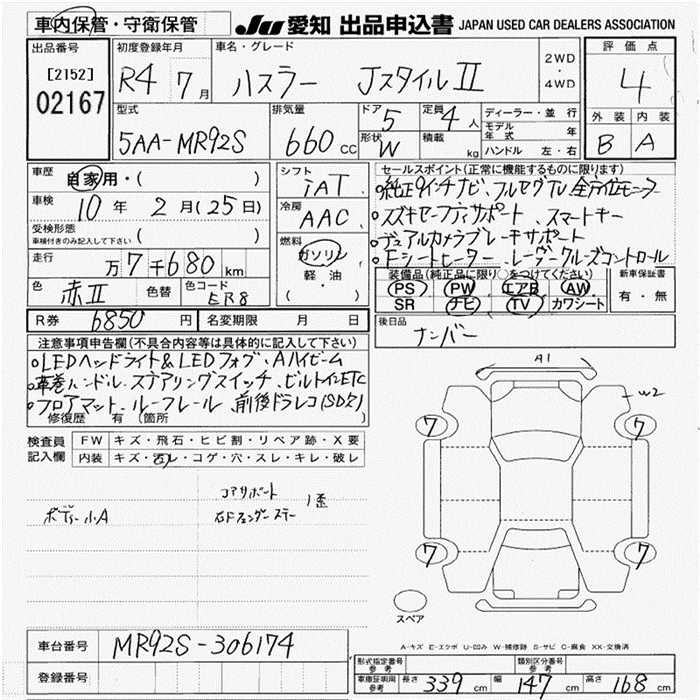 車内保管・守衛保管 JU 愛知 出品申込書 JAPAN USED CAR DEALERS ASSOCIATION
出品番号 初度登録年月 車名・グレード 評価点
[2152] 02167 R4 7月 ハスラー JスタイルⅡ 2WD・4WD 4
型式 排気量 ドア 5 定員 4人 ディーラー・並行 外装 内装
5AA-MR92S 660cc 形状 W 積載 kg モデル年式 年 B A
ハンドル 左・右
車歴 自家用・( ) シフト セールスポイント(正常に機能するものに限ります)
車検 10年2月(25日) IAT 。純正9インチナビ、フルセグTV 全方位モニター
受検形態 ( ) 冷房 AAC 。スズキセーフティサポート、スマートキー
車検付きのみ記入して下さい
走行 万7千680km 燃料 ガソリン 。デュアルカメラブレーキサポート
軽・油 。Fシートヒーター、レーダークルーズコントロール
色 赤Ⅱ 色替 色コード ER8 ( )
装備品(純正品に限り○をつけてください) 新車保証書
PS PW エアB AW 有・無
SR ナビ TV カワシート
R券 6850円 名変期限 月 日 後日品
ナンバー
注意事項申告欄(不具合内容等は具体的に記入して下さい)
。LEDヘッドライト&LEDフォグ、Aハイビーム
。革巻ハンドル、ステアリングスイッチ、ビルトインETC
。フロアマット、ルーフレール 前後ドラレコ(SD欠)
修復歴 有 (箇所
検査員記入欄 FW キズ・飛石・ヒビ割・リペア跡・X要
内装 キズ・汚レ・コゲ・穴・スレ・キレ・破レ
ボディー小A コアサポート
1歪
A1
W2
7 7
7 7
スペア
A-キズ E-エクボ U-凹み W-補修跡 S-サビ C-腐食 XX-交換済
車台番号 MR92S-306174
登録番号
型式指定番号 参考 類別区分番号 参考
車庫証明用 参考 長さ 339cm 幅 147cm 高さ 168cm